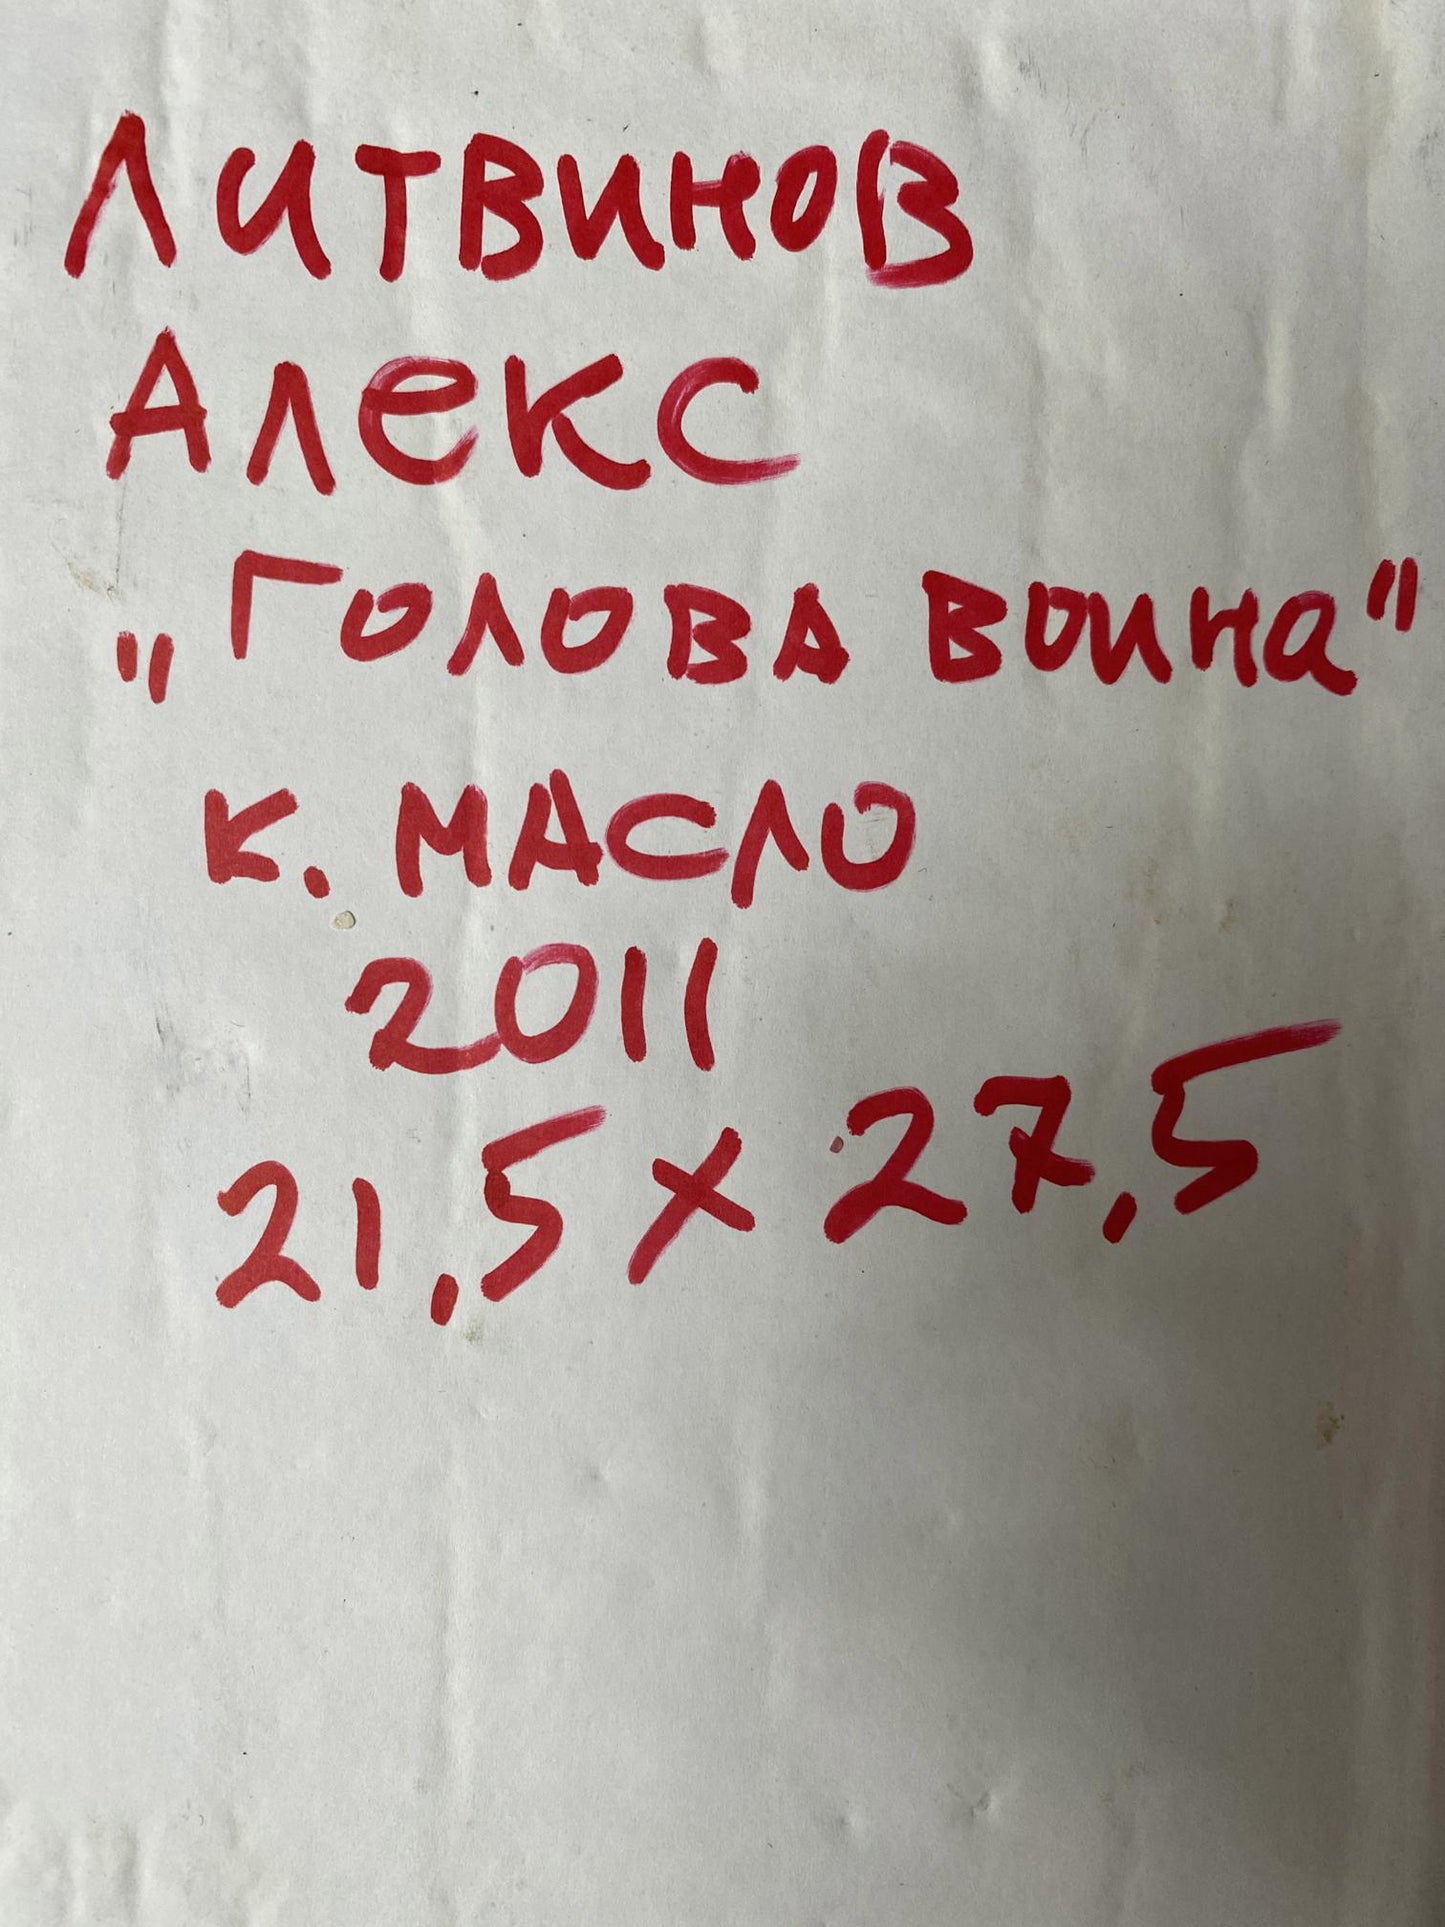 Литвинов
Алекс
„Голова воина"
к. масло
2011
21,5 x 27,5